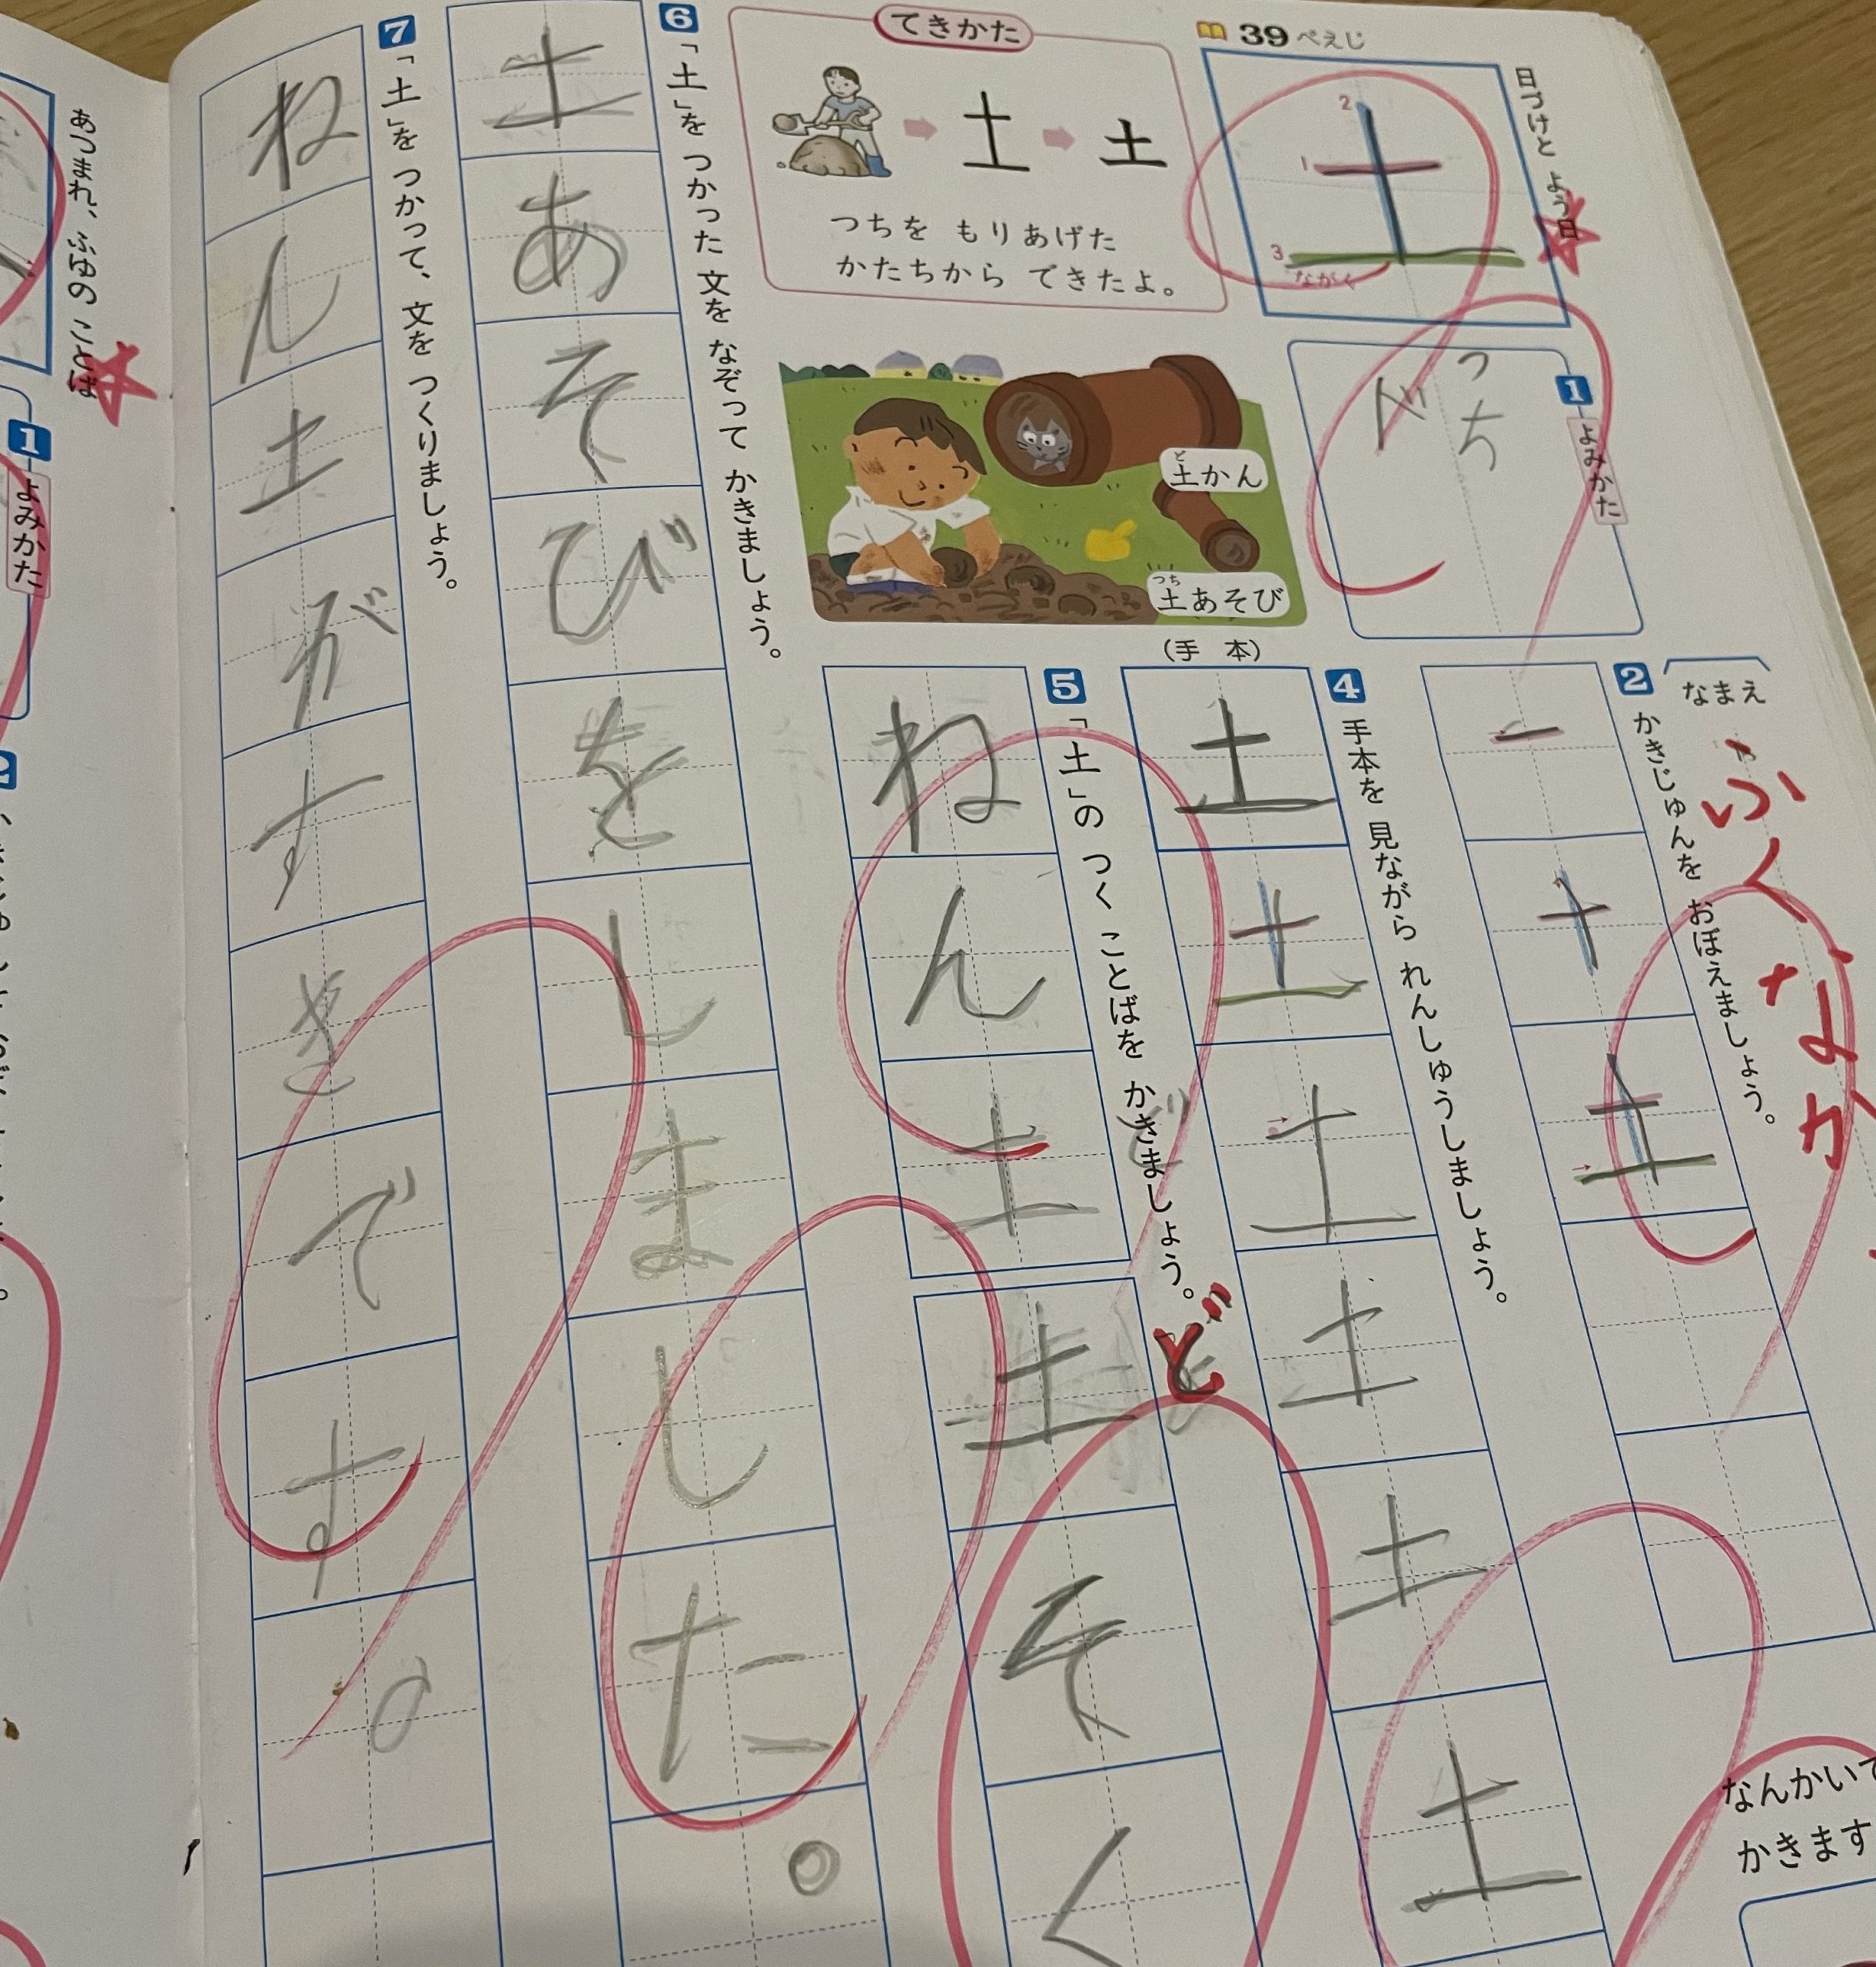 日づけと よう日
39 ぺえじ
2
1
3
ながく
土
てきかた
土
土
つちを もりあげた
かたちから できたよ。
1 よみかた
つち
ド
土かん
ど
土あそび
つち
なまえ
ふくなが
2 かきじゅんを おぼえましょう。
一
十
土
(手 本)
4 手本を 見ながら れんしゅうしましょう。
土
土
土
土
土
土
5 「土」の つく ことばを かきましょう。
ねん土
ど
ど
土そく
6 「土」を つかった 文を なぞって かきましょう。
土あそびをしました。
7 「土」を つかって、文を つくりましょう。
ねん土がすきです。
なんかいで
かきます
あつまれ、ふゆの ことば
1 よみかた
2